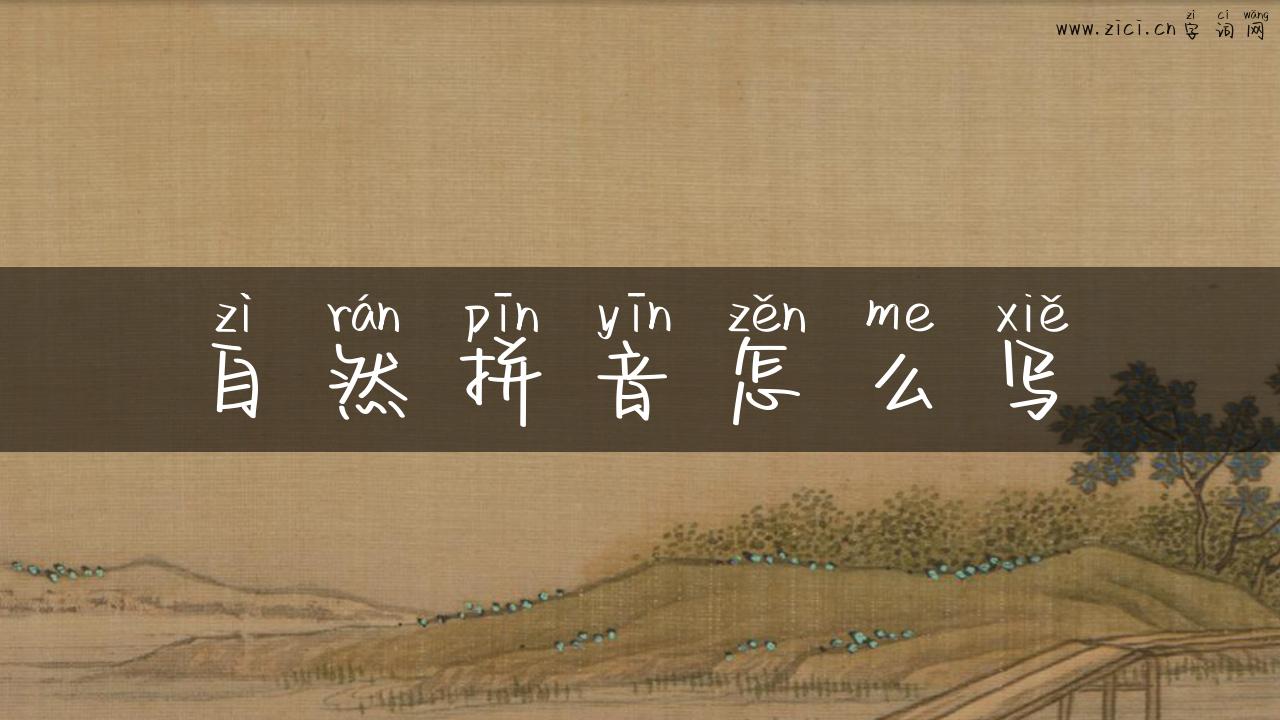 zì cí wǎng
www.zici.cn字词网
zì rán pīn yīn zěn me xiě
自然拼音怎么写